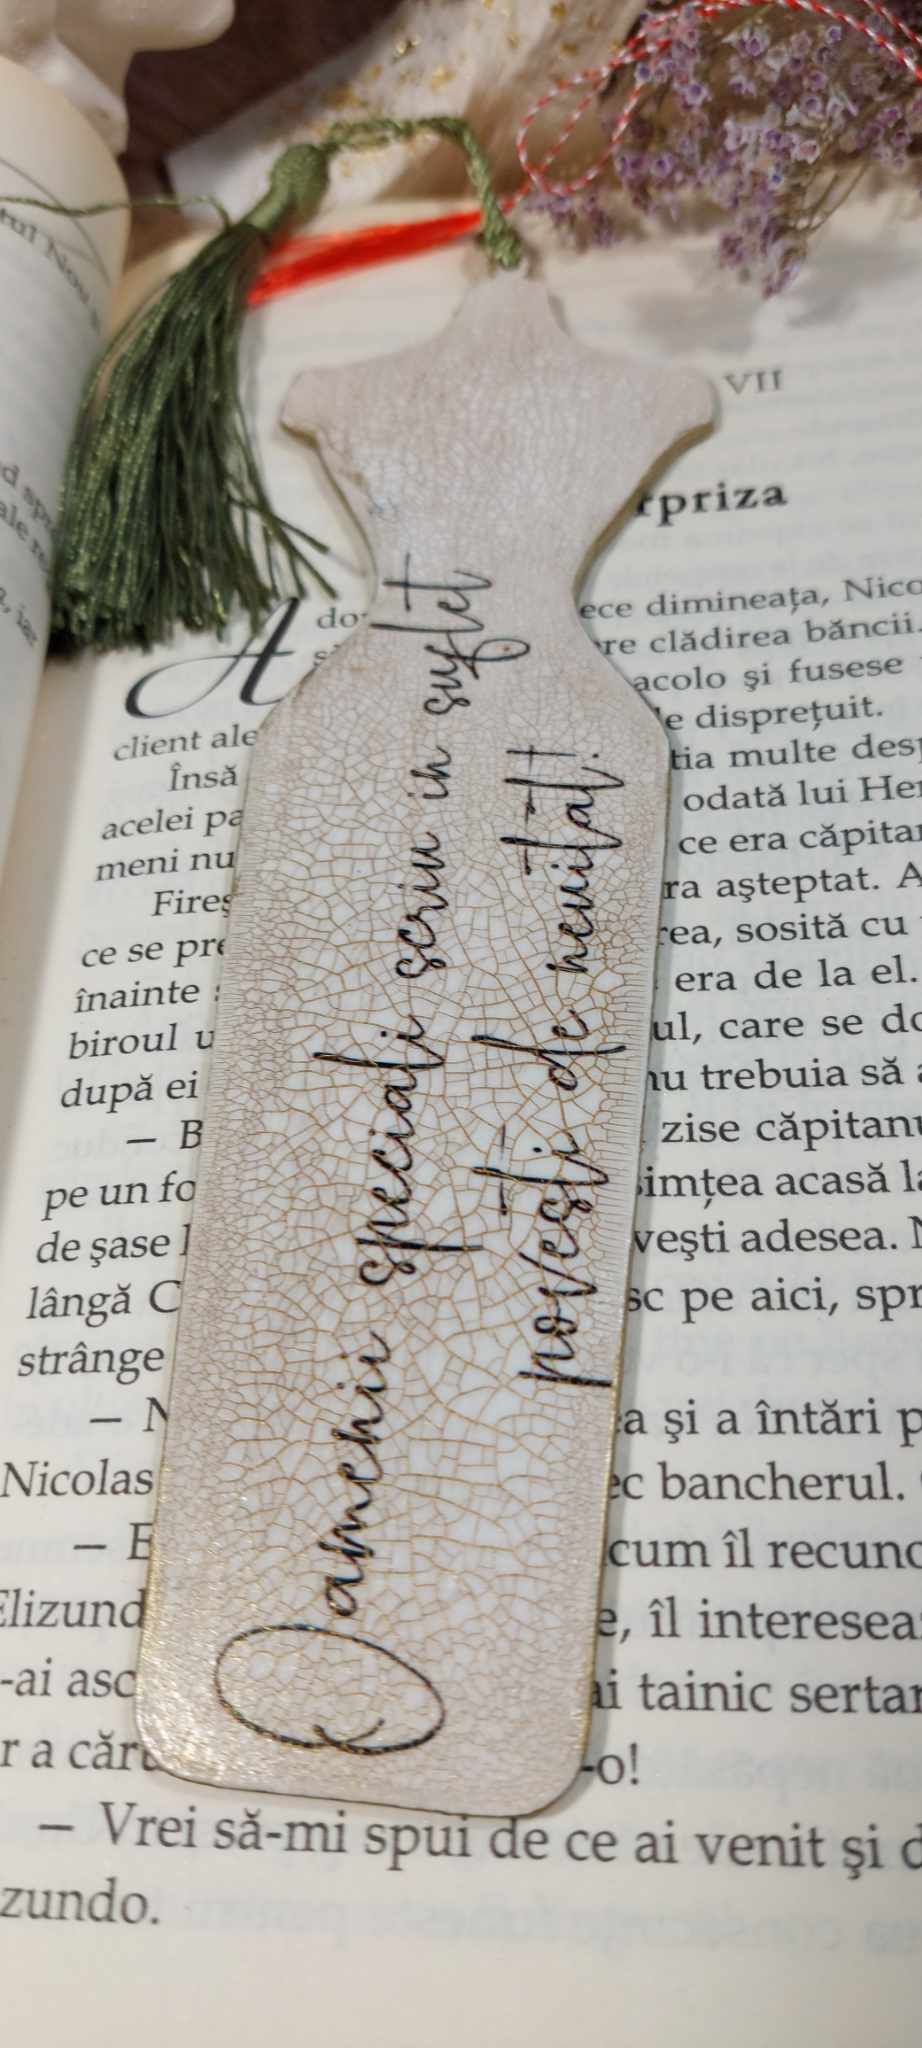 VII
rpriza
A do ece dimineața, Nico
re clădirea băncii.
acolo și fusese
client ale le disprețuit.
Însă tia multe desp
acelei pa odată lui Her
meni nu ce era căpitan
Fireș ra așteptat. A
ce se pre rea, sosită cu
înainte era de la el.
biroul u ul, care se do
după ei nu trebuia să a
— B zise căpitanu
pe un fo simțea acasă la
de șase l vești adesea. N
lângă C sc pe aici, spr
strânge
— N a și a întări p
Nicolas ec bancherul.
— E cum îl recuno
Elizund e, îl interesea
-ai asc ai tainic sertar
r a căru -o!
— Vrei să-mi spui de ce ai venit și d
zundo.
Oamenii speciali scriu in suflet
povesti de neuitat.